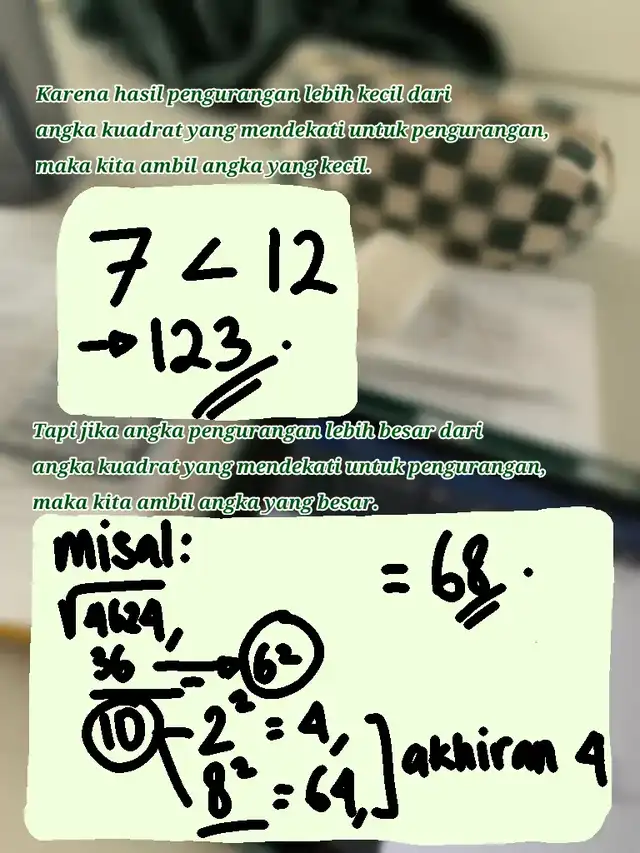 Karena hasil pengurangan lebih kecil dari
angka kuadrat yang mendekati untuk pengurangan,
maka kita ambil angka yang kecil.
7 < 12
→ 123.
Tapi jika angka pengurangan lebih besar dari
angka kuadrat yang mendekati untuk pengurangan,
maka kita ambil angka yang besar.
misal:
= 68.
√4624,
36 → 6²
10 - 2² = 4,
8² = 64,
akhiran 4